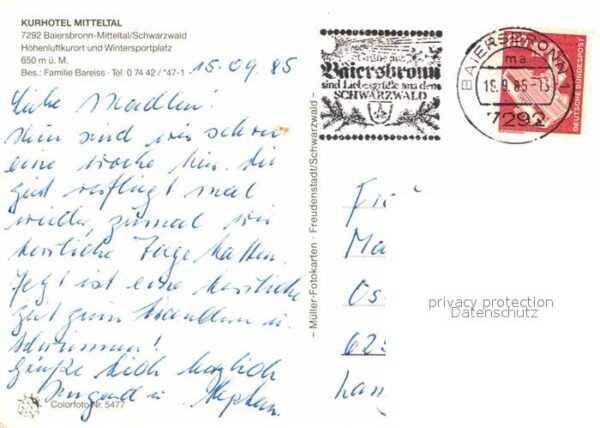 KURHOTEL MITTELTAL
7292 Baiersbronn-Mitteltal/Schwarzwald
Höhenluftkurort und Wintersportplatz
650 m ü. M.
Bes.: Familie Bareiss · Tel. 0 74 42 / *47-1
15.09.85
Liebe Madlen!
Nun sind wir schon
eine Woche hier. Die
Zeit verfliegt mal
wieder, zumal wir
herrliche Tage hatten.
Jetzt ist eine herrliche
Zeit zum Wandern u.
Schwimmen!
Grüße Dich herzlich
Irmgard u. Stephan
Colorfoto Nr. 5477
– Müller-Fotokarten · Freudenstadt/Schwarzwald –
Grüße aus
Baiersbronn
sind Liebesgrüße aus dem
SCHWARZWALD
BAIERSBRONN 1
ma
16.9.85-13
7292
DEUTSCHE BUNDESPOST
Ma
Os
privacy protection
Datenschutz
62
Lan